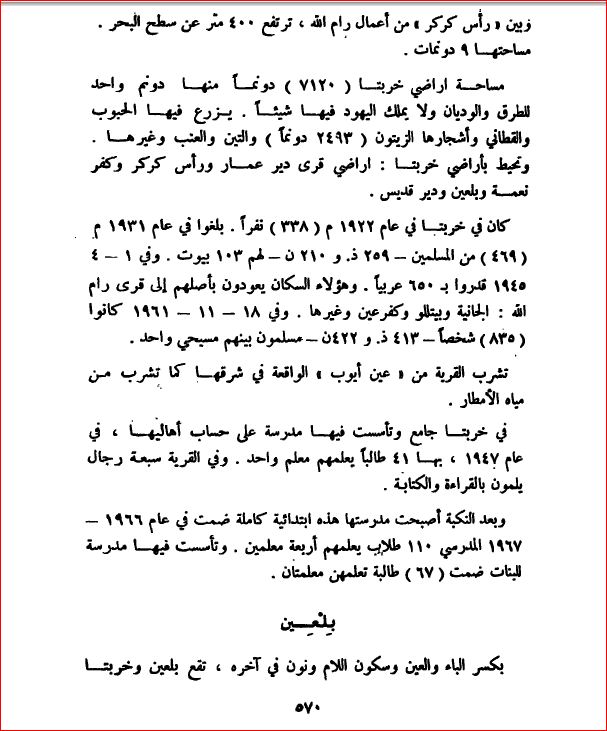 وبين « رأس كركر » من أعمال رام الله ، ترتفع ٤٠٠ متر عن سطح البحر .
مساحتها ٩ دونمات .
مساحة اراضي خربتا ( ٧١٢٠ ) دونماً منها دونم واحد
للطرق والوديان ولا يملك اليهود فيها شيئاً . يزرع فيها الحبوب
والقطاني وأشجارها الزيتون ( ٢٤٩٣ دونماً ) والتين والعنب وغيرها .
وتحيط بأراضي خربتا : اراضي قرى دير عمار ورأس كركر وكفر
نعمة وبلعين ودير قديس .
كان في خربتا في عام ١٩٢٢ م ( ٣٣٨ ) نفراً . بلغوا في عام ١٩٣١ م
( ٤٦٩ ) من المسلمين – ٢٥٩ ذ. و ٢١٠ ن – لهم ١٠٣ بيوت . وفي ١ – ٤
١٩٤٥ قدروا بـ ٦٥٠ عربياً . وهؤلاء السكان يعودون بأصلهم إلى قرى رام
الله : الجانية وبيتللو وكفرعين وغيرها . وفي ١٨ – ١١ – ١٩٦١ كانوا
( ٨٣٥ ) شخصاً – ٤١٣ ذ. و ٤٢٢ن – مسلمون بينهم مسيحي واحد .
تشرب القرية من « عين أيوب » الواقعة في شرقها كما تشرب من
مياه الأمطار .
في خربتا جامع وتأسست فيها مدرسة على حساب أهاليها ، في
عام ١٩٤٧ ، بها ٤١ طالباً يعلمهم معلم واحد . وفي القرية سبعة رجال
يلمون بالقراءة والكتابة .
وبعد النكبة أصبحت مدرستها هذه ابتدائية كاملة ضمت في عام ١٩٦٦ –
١٩٦٧ المدرسي ١١٠ طلاب يعلمهم أربعة معلمين . وتأسست فيها مدرسة
للبنات ضمت ( ٦٧ ) طالبة تعلمهن معلمتان .
بِلْعِين
بكسر الباء والعين وسكون اللام ونون في آخره ، تقع بلعين وخربتا
٥٧٠